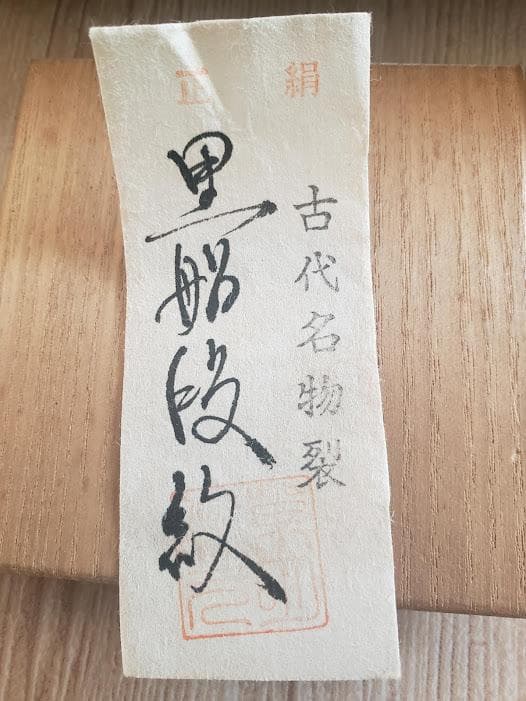 正絹
古代名物裂
黒船段紋